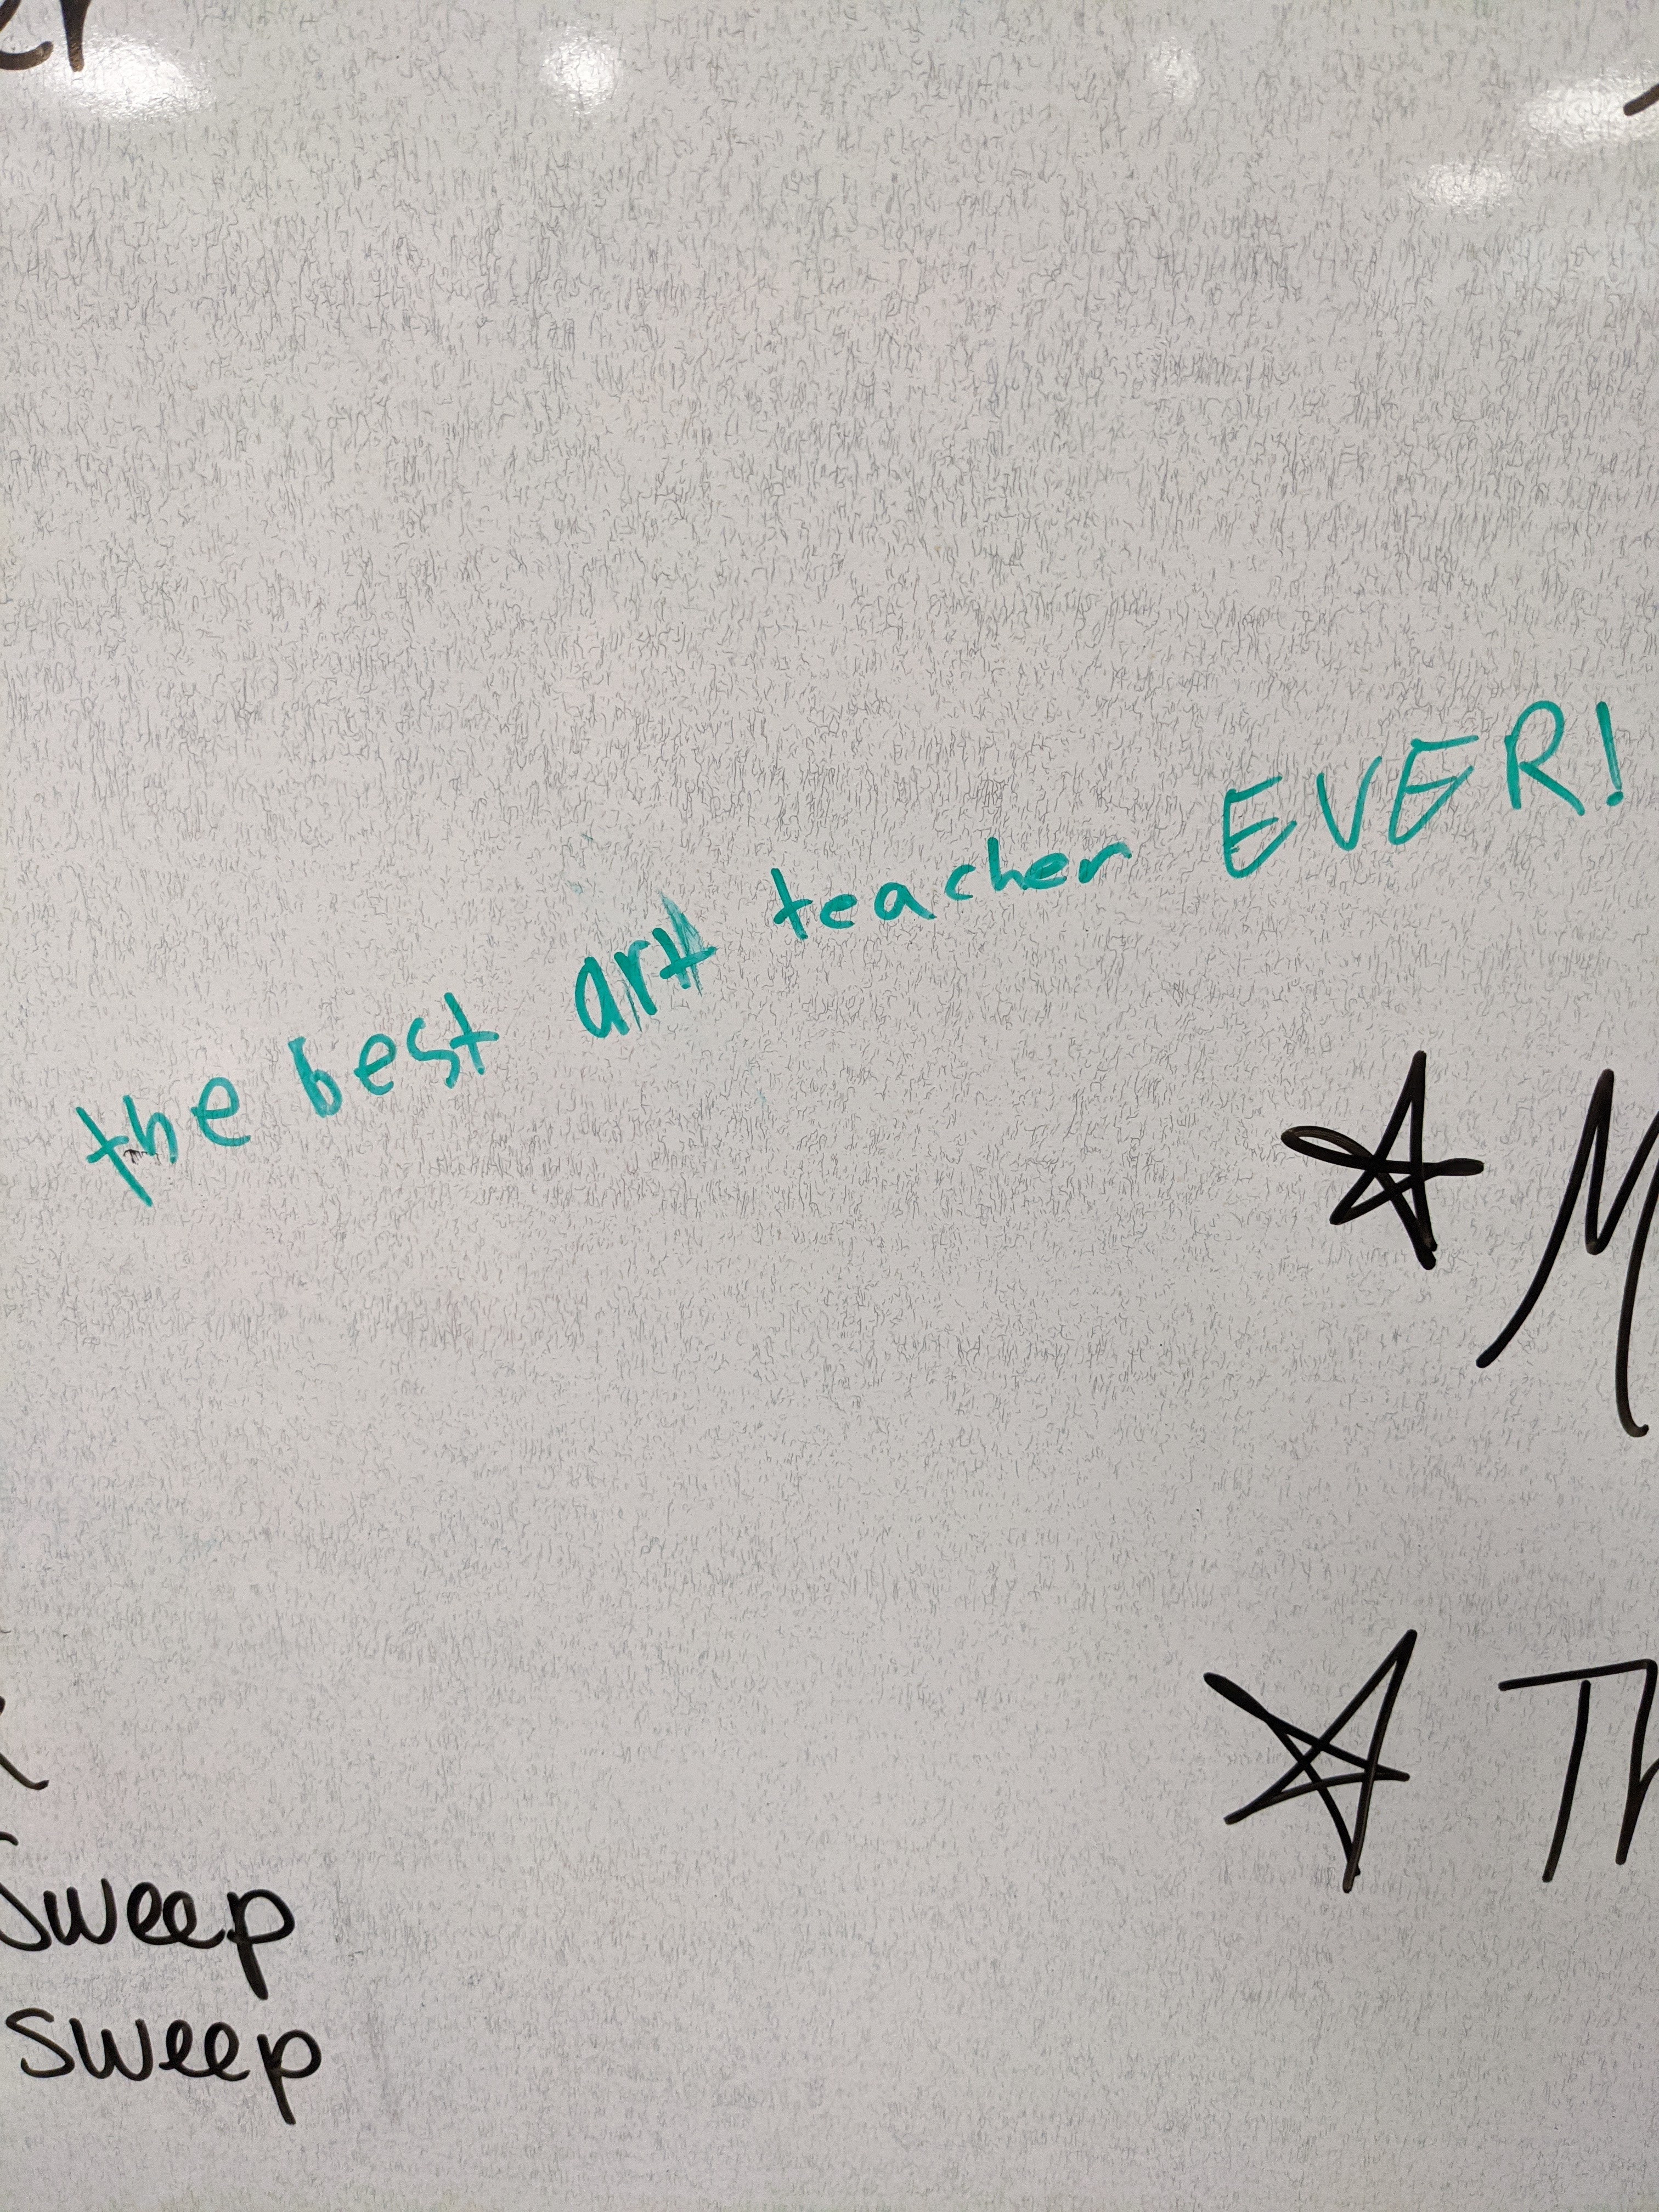 the best art teacher EVER!
Sweep
Sweep